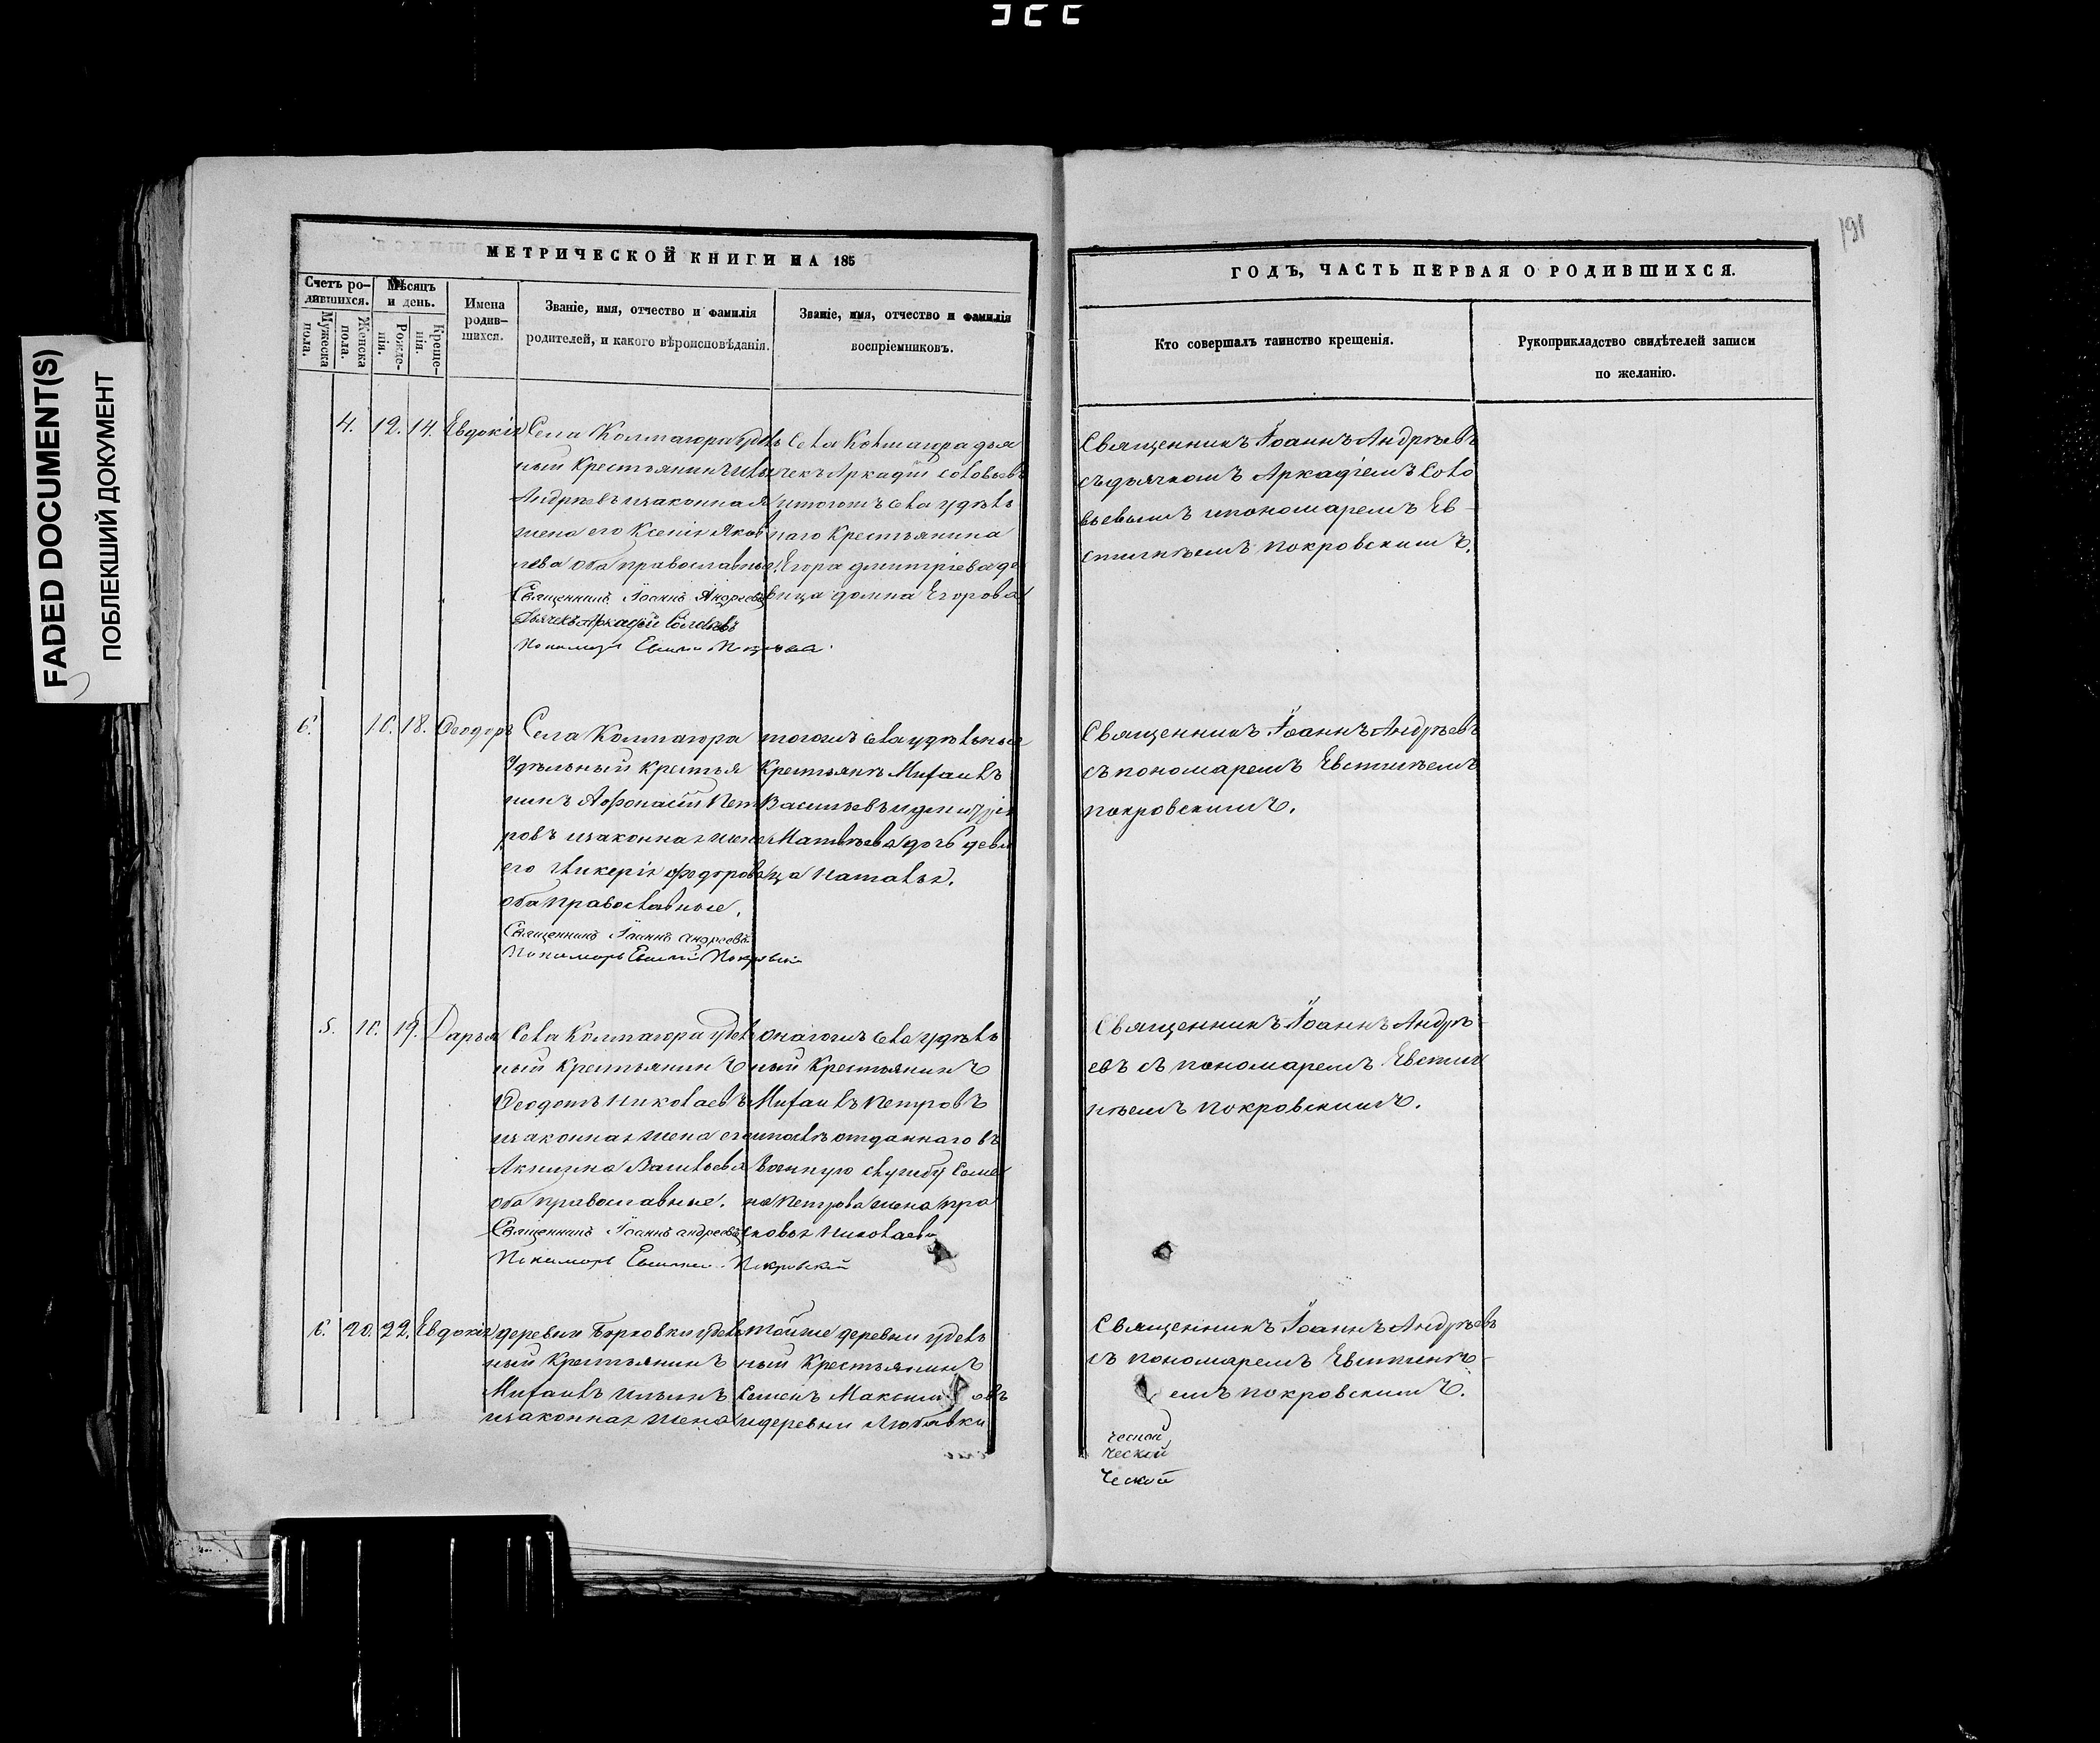 FADED DOCUMENT(S)
ПОБЛЕКШИЙ ДОКУМЕНТ
МЕТРИЧЕСКОЙ КНИГИ НА 185
Счетъ ро-
дившихся.
Мѣсяцъ
и день.
Мужеска
пола.
Женска
пола.
Рожде-
нія.
Креще-
нія.
Имена
родив-
шихся.
Званіе, имя, отчество и фамилія
родителей, и какого вѣроисповѣданія.
Званіе, имя, отчество и фамилія
воспріемниковъ.
4. 12. 14. Евдокія
Села Колтагора удѣль
ный Крестьянинъ
Андреевъ изаконная
жена его Ксенія Яков
лева оба православные
Священникъ Іоаннъ Андреевъ
Дьячекъ Аркадій Соловьевъ
Пономарь
Села Колтагора дья
чекъ Аркадій Соловьевъ
итогожъ села удѣль
наго Крестьянина
Егора Дмитріева де
вица Домна Егорова
6. 16. 18. Феодоръ
Села Колтагора
Удѣльный Крестья
нинъ Афонасій Пет
ровъ изаконная жена
его Гликерія Федорова
оба православные.
Священникъ Іоаннъ Андреевъ
Пономарь Покровскій
тогожъ села удѣльные
Крестьяне Михаилъ
Васильевъ
Матвѣева дочь деви
ца Наталья.
5. 16. 19. Дарья
Села Колтагора удѣль
ный Крестьянинъ
Феодотъ Николаевъ
изаконная жена его
Акилина Васильева
оба православные.
Священникъ Іоаннъ Андреевъ
Пономарь Покровскій
онагожъ села удѣль
ный Крестьянинъ
Михаилъ Петровъ
отданнаго въ
военную службу Семе
на Петрова жена Пра
сковья Николаева
6. 20. 22. Евдокія
деревни Борковки удѣль
ный Крестьянинъ
Михаилъ Ильинъ
изаконная жена
тойже деревни удѣль
ный Крестьянинъ
Семенъ Максимовъ
идеревни Любавки
191
ГОДЪ, ЧАСТЬ ПЕРВАЯ О РОДИВШИХСЯ.
Кто совершалъ таинство крещенія.
Рукоприкладство свидѣтелей записи
по желанію.
Священникъ Іоаннъ Андреевъ
съ дьячкомъ Аркадіемъ Соло
вьевымъ ипономаремъ Ев-
стигнѣемъ Покровскимъ.
Священникъ Іоаннъ Андреевъ
съ пономаремъ Евстигнѣемъ
Покровскимъ.
Священникъ Іоаннъ Андрѣ
евъ съ пономаремъ Евстиг
нѣемъ Покровскимъ.
Священникъ Іоаннъ Андреевъ
съ пономаремъ Евстигнѣ-
емъ Покровскимъ.
ческой
ческой
ческой